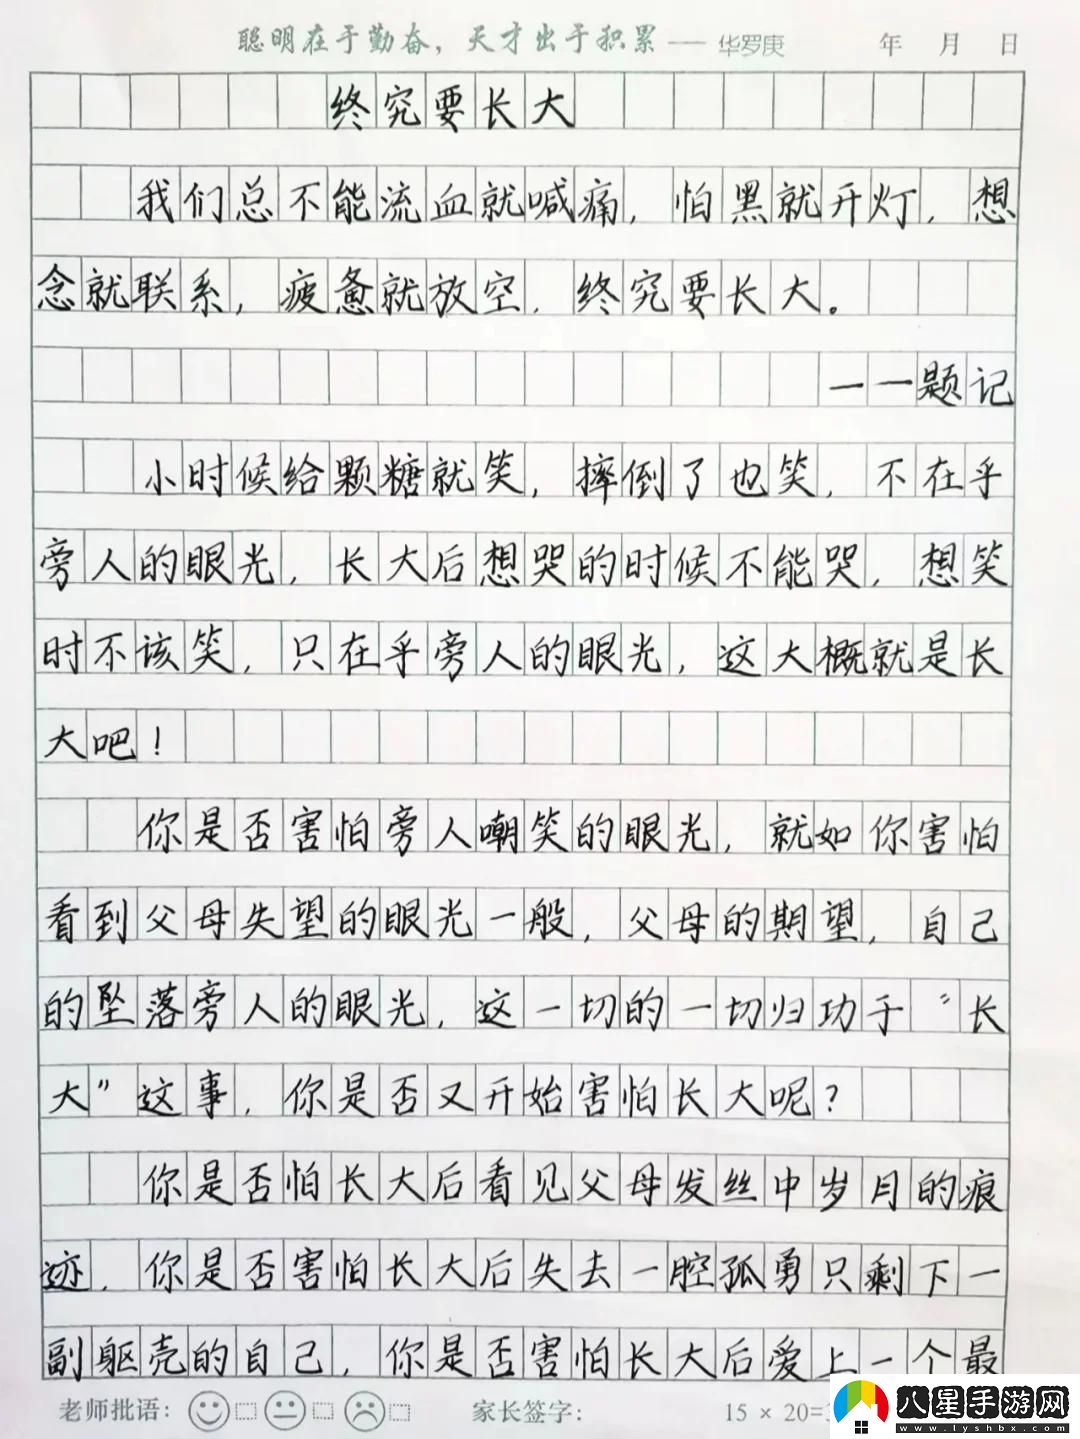 聪明在于勤奋，天才出于积累——华罗庚 年 月 日
终究要长大
我们总不能流血就喊痛，怕黑就开灯，想
念就联系，疲惫就放空，终究要长大。
——题记
小时候给颗糖就笑，摔倒了也笑，不在乎
旁人的眼光，长大后想哭的时候不能哭，想笑
时不该笑，只在乎旁人的眼光，这大概就是长
大吧！
你是否害怕旁人嘲笑的眼光，就如你害怕
看到父母失望的眼光一般，父母的期望，自己
的坠落旁人的眼光，这一切的一切归功于“长
大”这事，你是否又开始害怕长大呢？
你是否怕长大后看见父母发丝中岁月的痕
迹，你是否害怕长大后失去一腔孤勇只剩下一
副躯壳的自己，你是否害怕长大后爱上一个最
老师批语： 家长签字： 15 × 20=
八星手游网
www.lyshbx.com